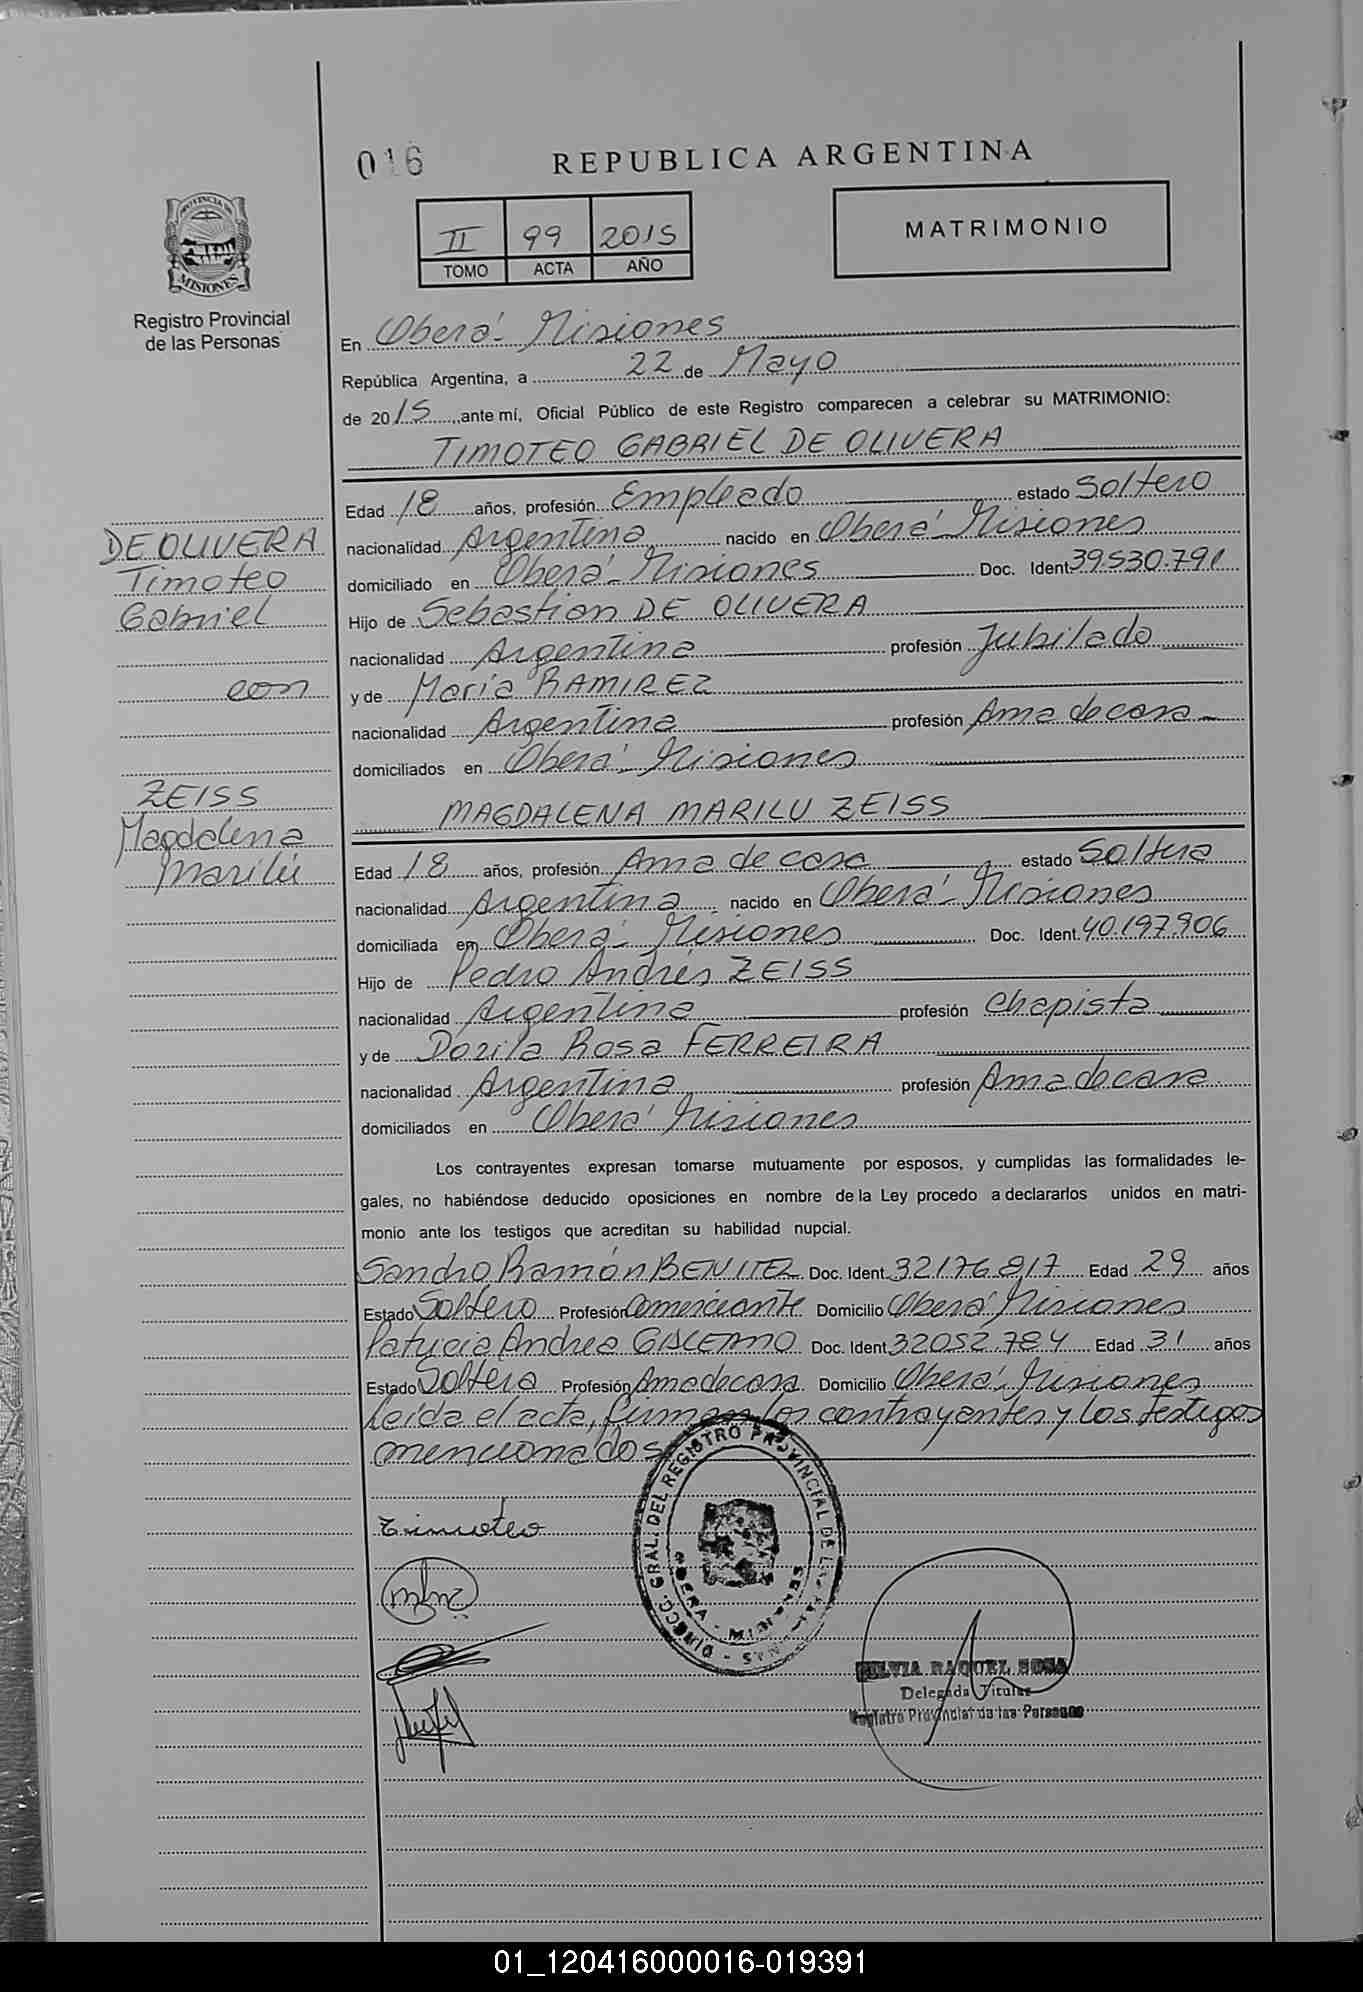 016
REPUBLICA ARGENTINA
PROVINCIA DE
MISIONES
Registro Provincial
de las Personas
II 99 2015
TOMO ACTA AÑO
MATRIMONIO
En Oberá - Misiones
República Argentina, a 22 de Mayo
de 2015, ante mí, Oficial Público de este Registro comparecen a celebrar su MATRIMONIO:
TIMOTEO GABRIEL DE OLIVERA
Edad 18 años, profesión Empleado estado Soltero
nacionalidad Argentina nacido en Oberá - Misiones
domiciliado en Oberá - Misiones Doc. Ident 39.530.791
Hijo de Sebastian DE OLIVERA
nacionalidad Argentina profesión Jubilado
y de Maria RAMIREZ
nacionalidad Argentina profesión Ama de casa
domiciliados en Oberá - Misiones
MAGDALENA MARILU ZEISS
Edad 18 años, profesión Ama de casa estado Soltera
nacionalidad Argentina nacido en Oberá - Misiones
domiciliada en Oberá - Misiones Doc. Ident. 40.197.906
Hijo de Pedro Andrés ZEISS
nacionalidad Argentina profesión Chapista
y de Dorila Rosa FERREIRA
nacionalidad Argentina profesión Ama de casa
domiciliados en Oberá Misiones
DE OLIVERA
Timoteo
Gabriel
con
ZEISS
Magdalena
Marilú
Los contrayentes expresan tomarse mutuamente por esposos, y cumplidas las formalidades le-
gales, no habiéndose deducido oposiciones en nombre de la Ley procedo a declararlos unidos en matri-
monio ante los testigos que acreditan su habilidad nupcial.
Sandro Ramón BENITEZ Doc. Ident. 32176817 Edad 29 años
Estado Soltero Profesión Comerciante Domicilio Oberá Misiones
Patricia Andrea Doc. Ident 32052.784 Edad 31 años
Estado Soltera Profesión Ama de casa Domicilio Oberá - Misiones
Leída el acta, firman los contrayentes y los testigos
mencionados
Timoteo
DIRECC. GRAL. DEL REGISTRO PROVINCIAL DE LAS PERSONAS
OBERA - MISIONES
SILVIA RAQUEL SOSA
Delegada Titular
Registro Provincial de las Personas
01_120416000016-019391